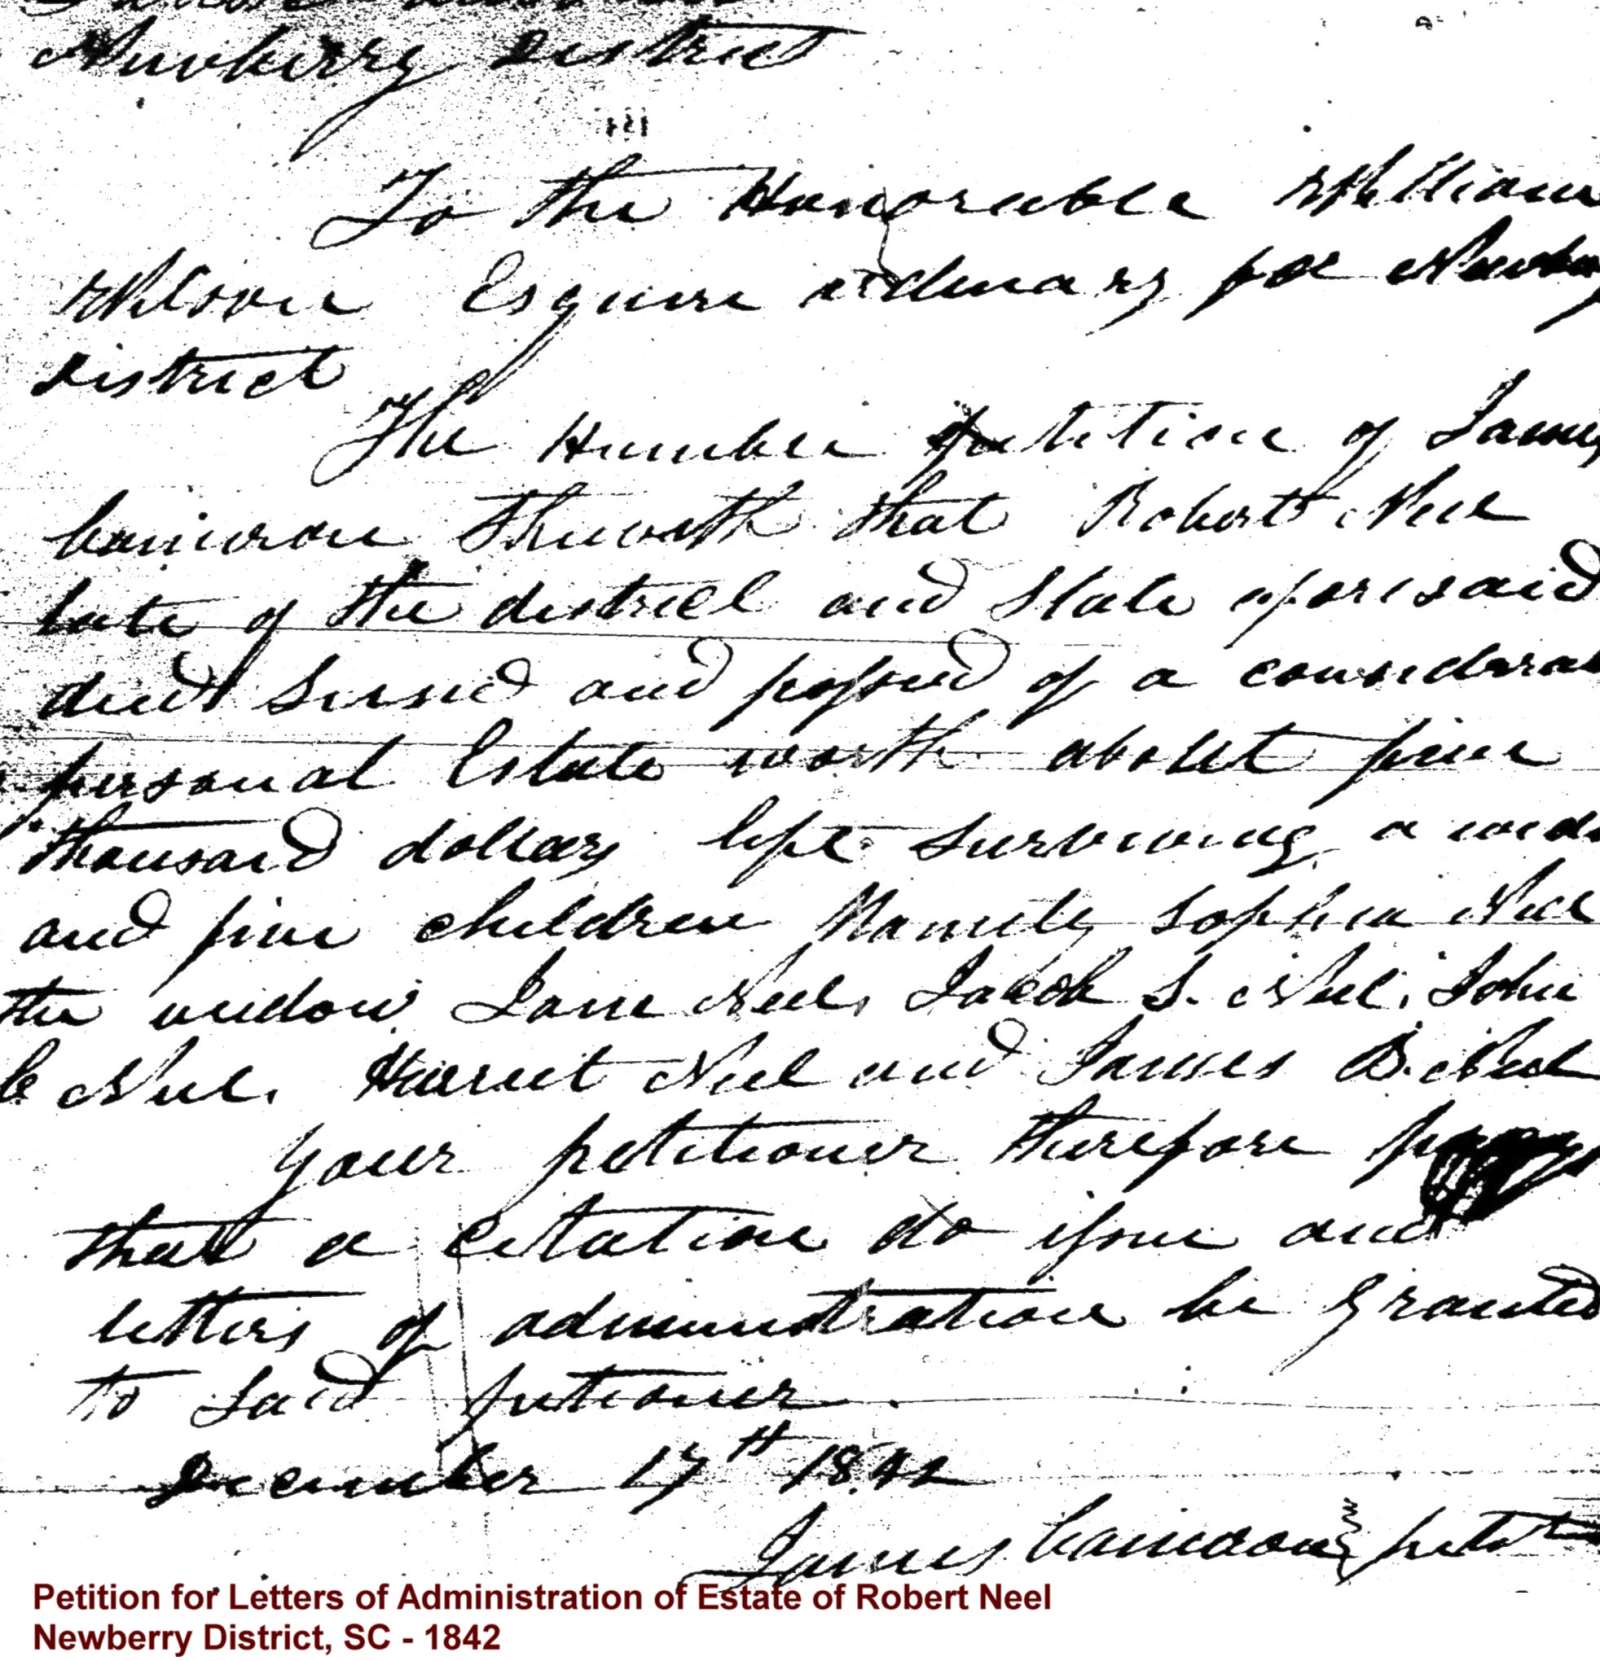 Newberry District
To the Honorable William
Wilson Esquire ordinary for Newberry
District
The Humble petition of James
Cameron Sheweth that Robert Neel
late of the district and State aforesaid
died Seased and possesed of a considerab
personal Estate worth about five
thousand dollars left surviving a wido
and five children Namely Sophia Neel
the widow Jane Neel, Jacob S. Neel, John
C Neel. Harriet Neel and James B. Neel
Your petitioner therefore prays
that a citation do issue and
letters of administration be granted
to said petioner.
December 17th 1842
James Cameron petr
Petition for Letters of Administration of Estate of Robert Neel
Newberry District, SC - 1842